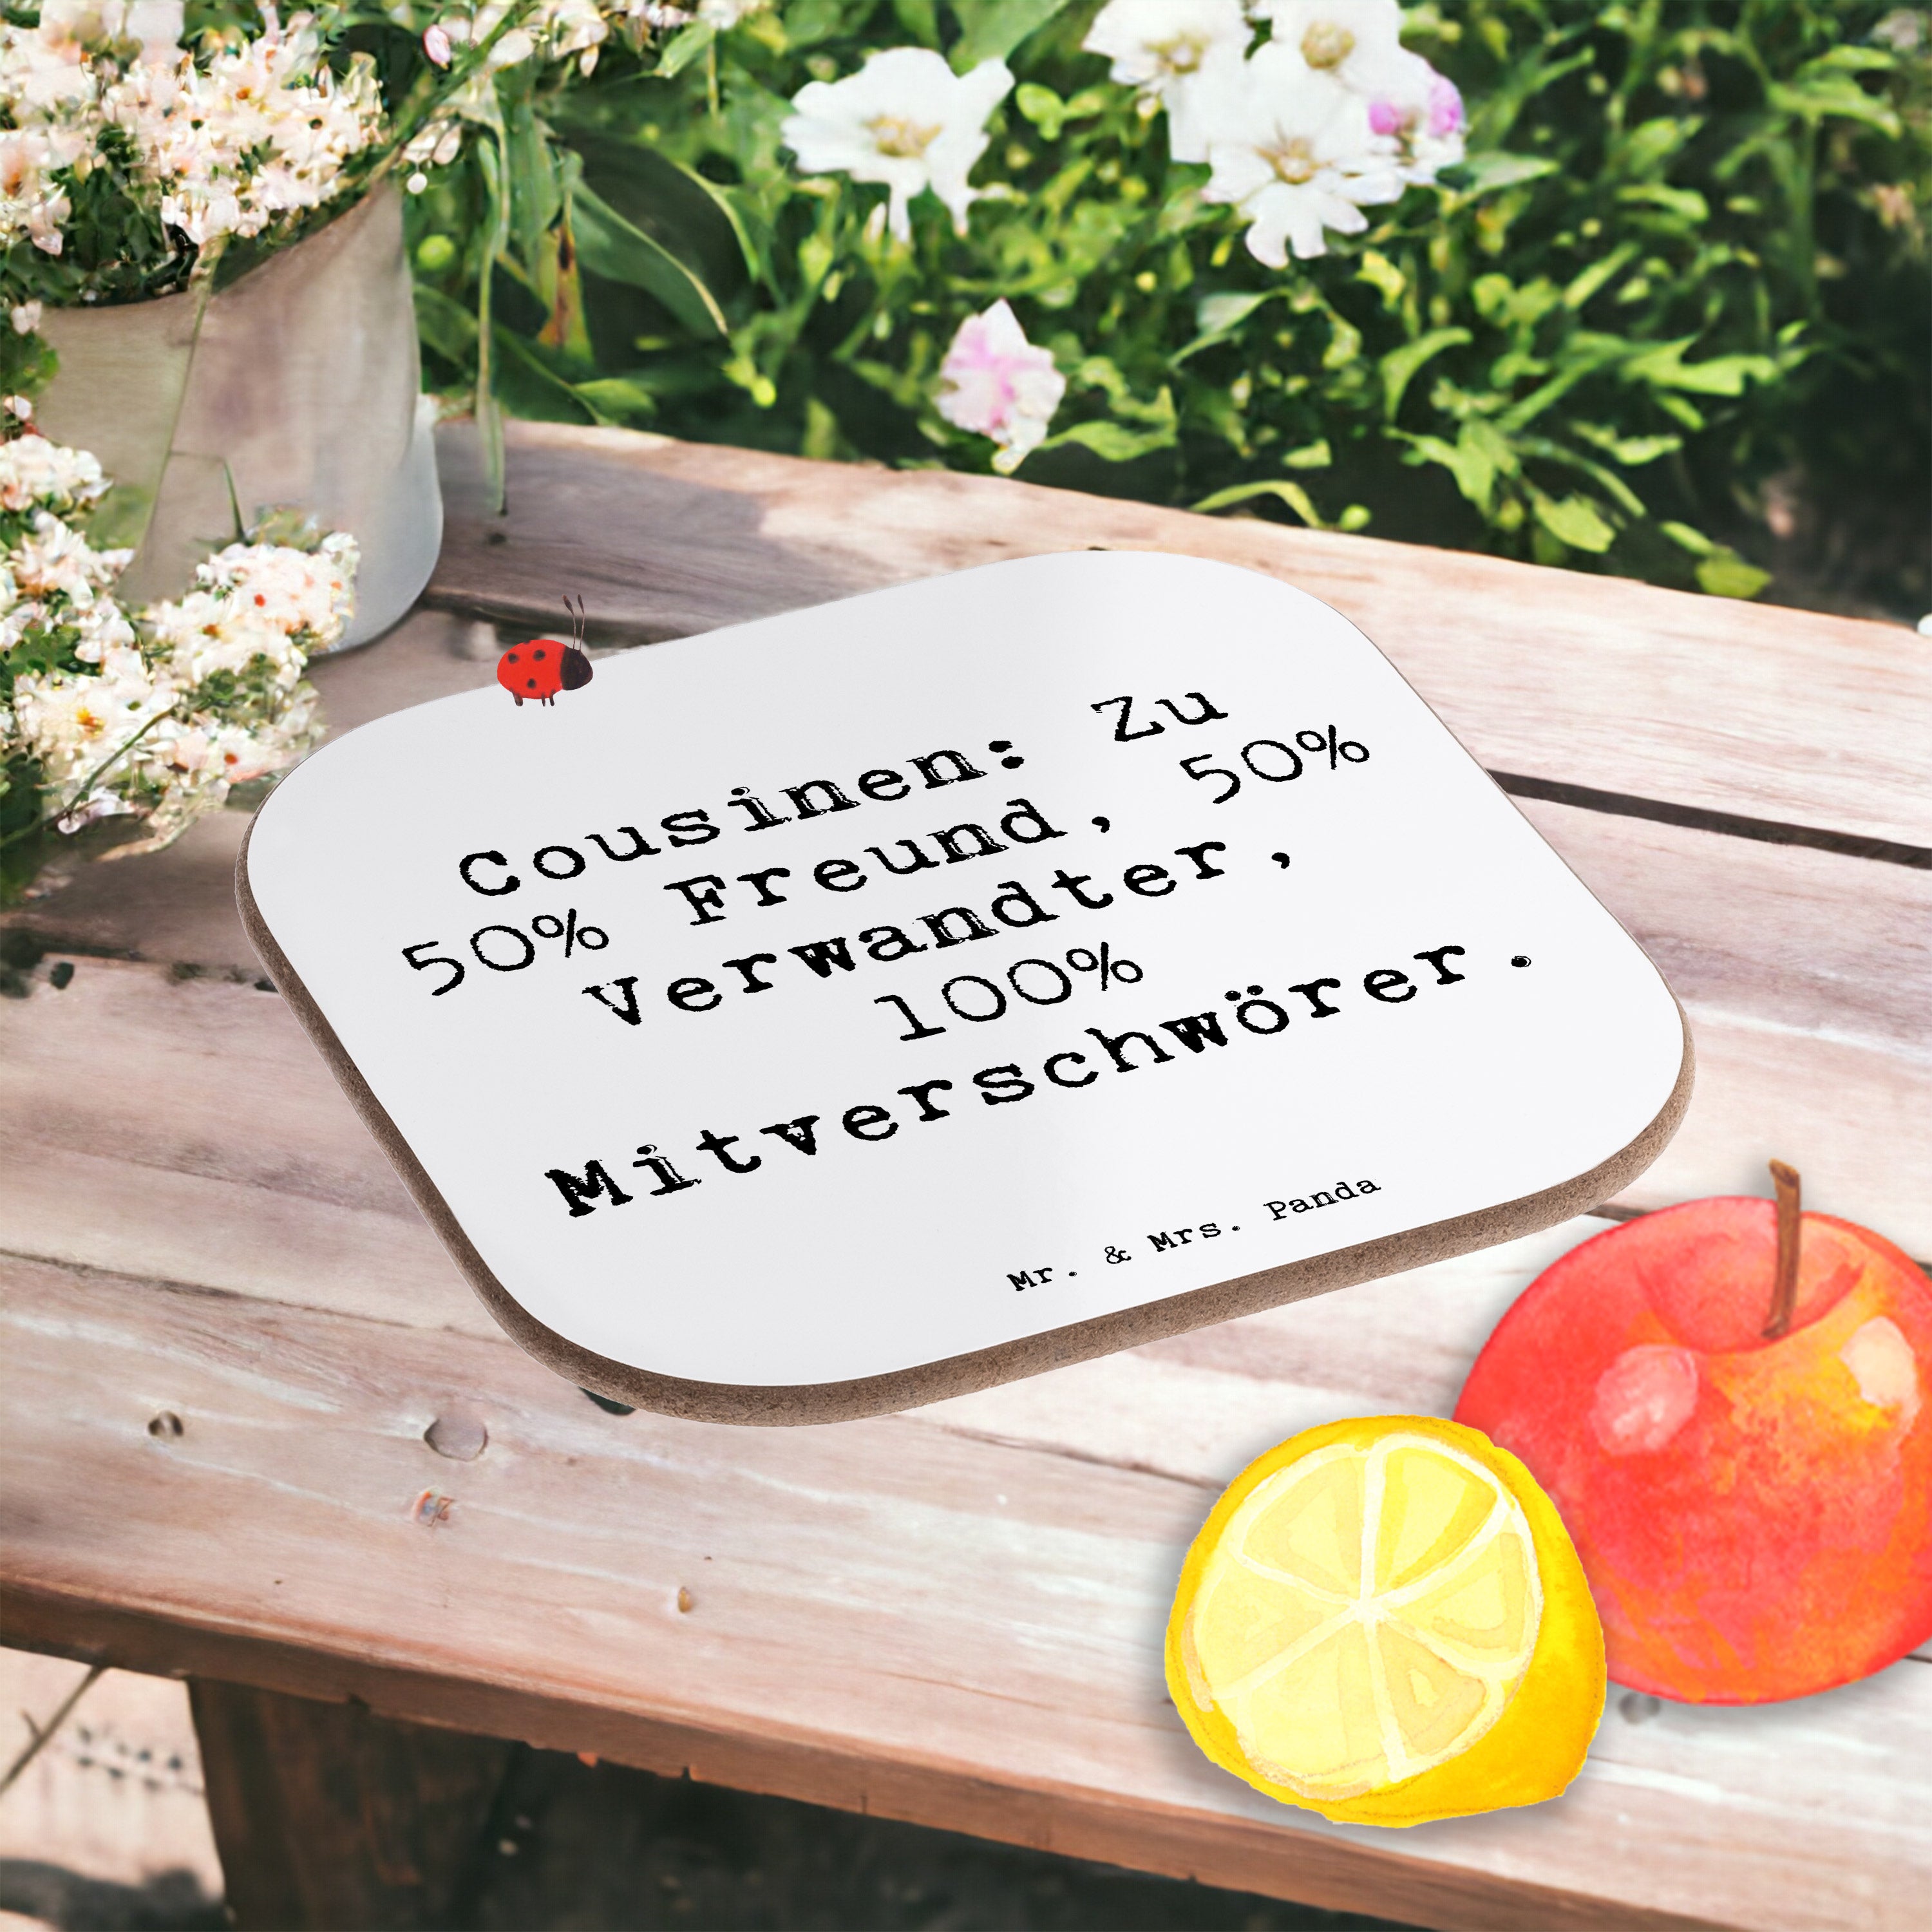 Cousinen: Zu
50% Freund, 50%
Verwandter,
100%
Mitverschwörer.
Mr. & Mrs. Panda